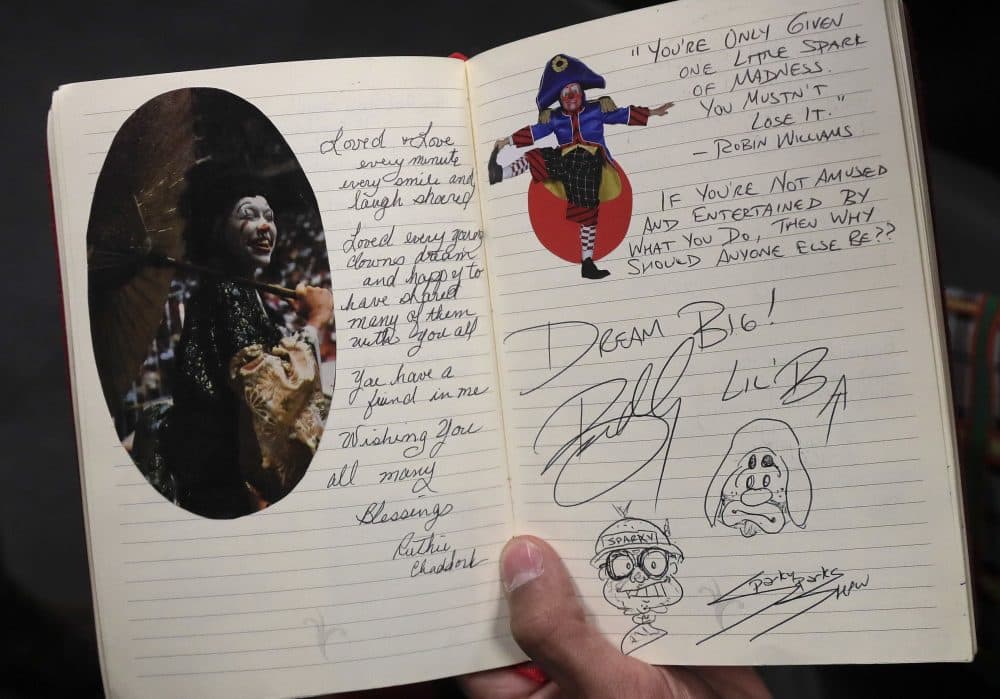 Loved & Love
every minute
every smile and
laugh shared
Loved every young
clowns dream
and happy to
have shared
many of them
with you all
You have a
friend in me
Wishing You
all many
Blessings
Ruthie
"YOU'RE ONLY GIVEN
ONE LITTLE SPARK
OF MADNESS.
YOU MUSTN'T
LOSE IT."
- ROBIN WILLIAMS
IF YOU'RE NOT AMUSED
AND ENTERTAINED BY
WHAT YOU DO, THEN WHY
SHOULD ANYONE ELSE BE??
DREAM BIG!
LIL' BA
SPARKY
Sparky Sparks